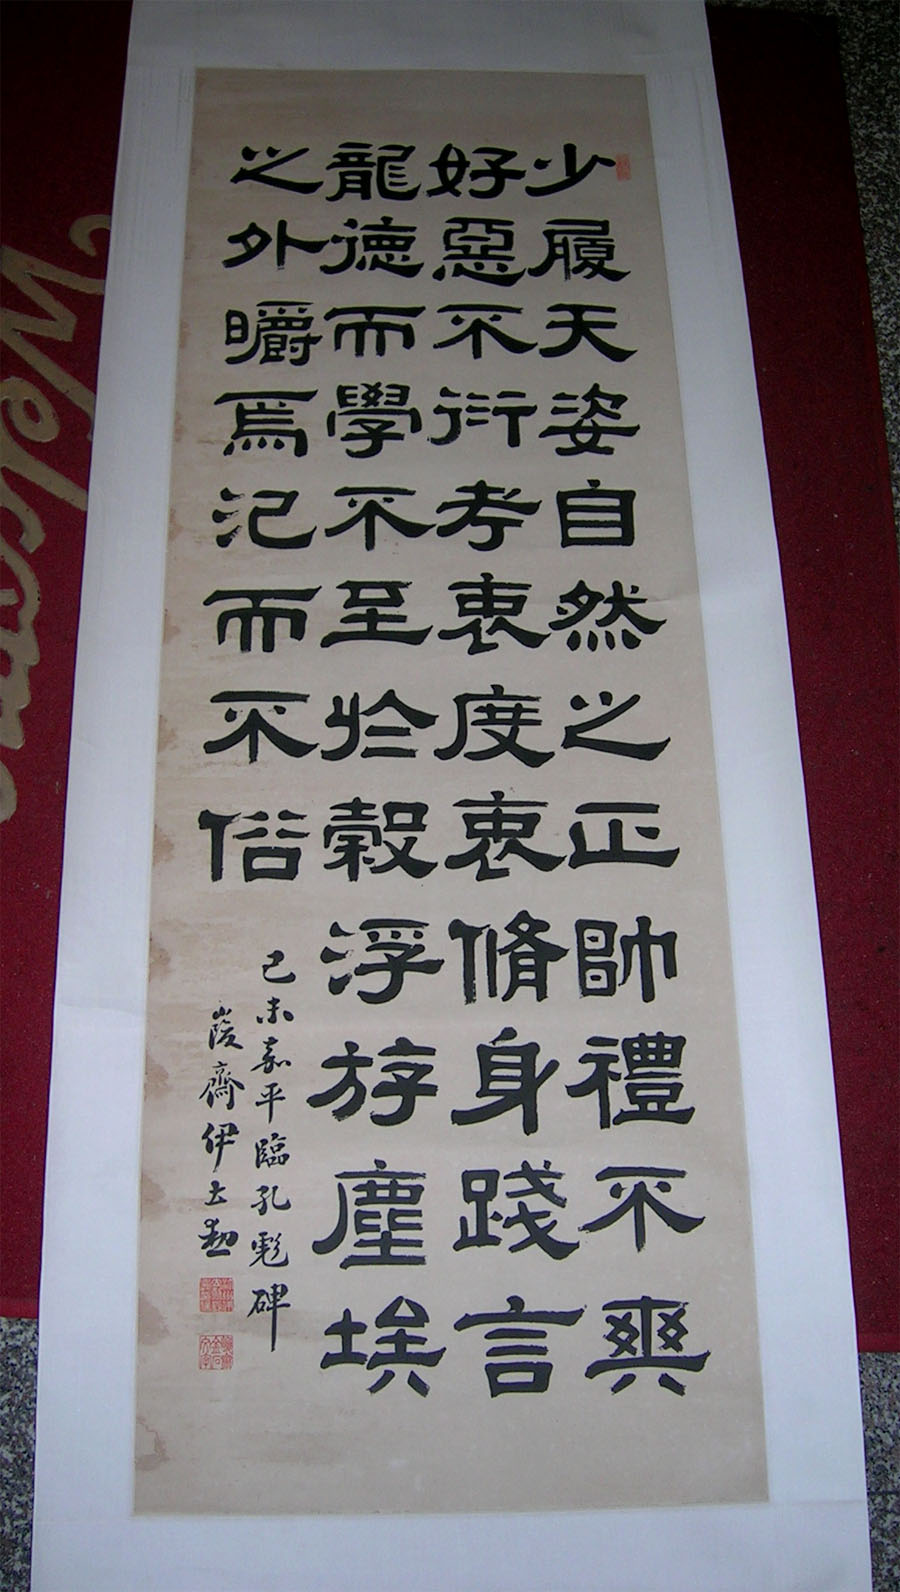 少履天姿自然之正帥禮不爽
好惡不衍考衷度衷脩身踐言
龍德而學不至於穀浮游塵埃
之外矙焉汜而不俗
己未嘉平臨孔彪碑
峻齋伊立勳
Welcome